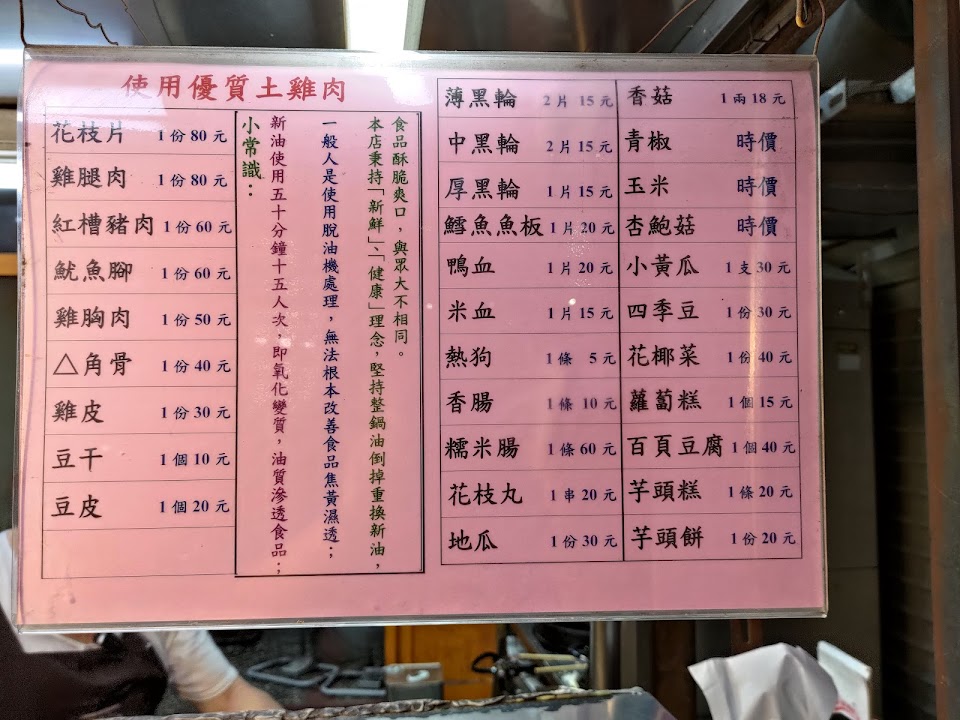 使用優質土雞肉
花枝片 1份80元
雞腿肉 1份80元
紅槽豬肉 1份60元
魷魚腳 1份60元
雞胸肉 1份50元
△角骨 1份40元
雞皮 1份30元
豆干 1個10元
豆皮 1個20元
小常識：
新油使用五十分鐘十五人次，即氧化變質，油質滲透食品；
一般人是使用脫油機處理，無法根本改善食品焦黃濕透；
本店秉持「新鮮」、「健康」理念，堅持整鍋油倒掉重換新油，
食品酥脆爽口，與眾大不相同。
薄黑輪 2片15元
中黑輪 2片15元
厚黑輪 1片15元
鱈魚魚板 1片20元
鴨血 1片20元
米血 1片15元
熱狗 1條 5元
香腸 1條 10元
糯米腸 1條60元
花枝丸 1串20元
地瓜 1份30元
香菇 1兩18元
青椒 時價
玉米 時價
杏鮑菇 時價
小黃瓜 1支30元
四季豆 1份30元
花椰菜 1份40元
蘿蔔糕 1個15元
百頁豆腐 1個40元
芋頭糕 1條20元
芋頭餅 1份20元